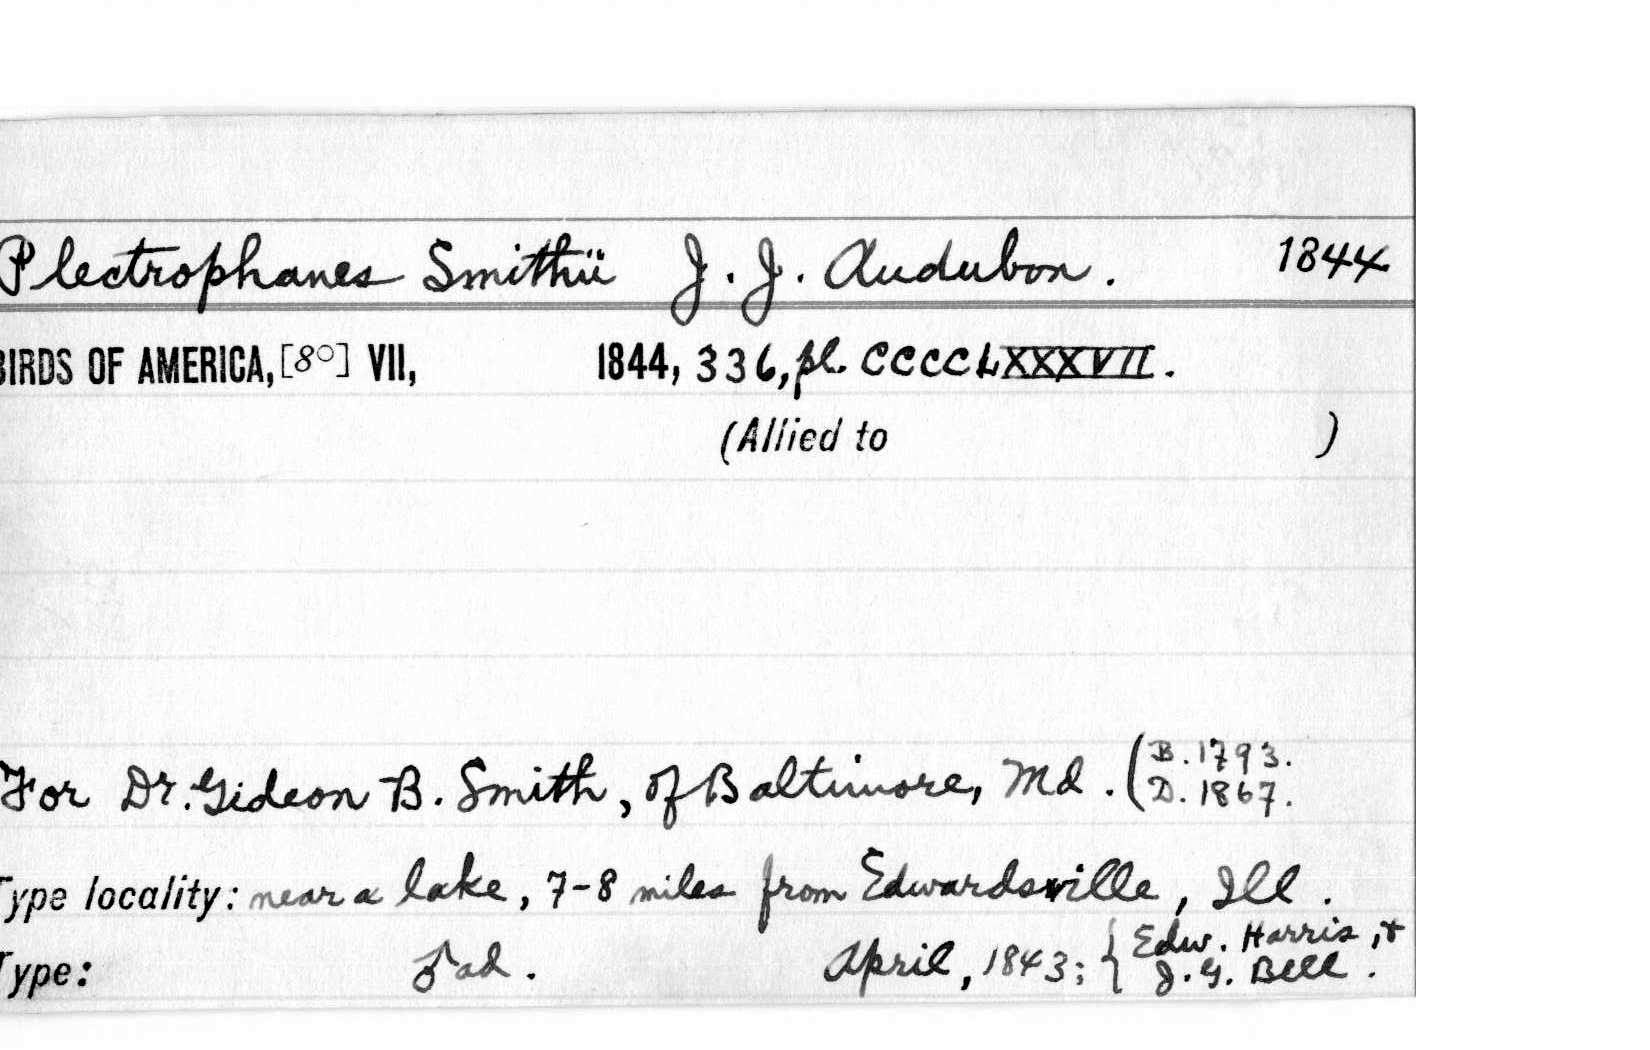 Plectrophanes Smithii J. J. Audubon. 1844
BIRDS OF AMERICA, [8°] VII, 1844, 336, pl. CCCCLXXXVII.
(Allied to )
For Dr. Gideon B. Smith, of Baltimore, Md. (B. 1793.
D. 1867.
Type locality: near a lake, 7-8 miles from Edwardsville, Ill.
Type: ♂ ad. April, 1843; { Edw. Harris, &
J. G. Bell.